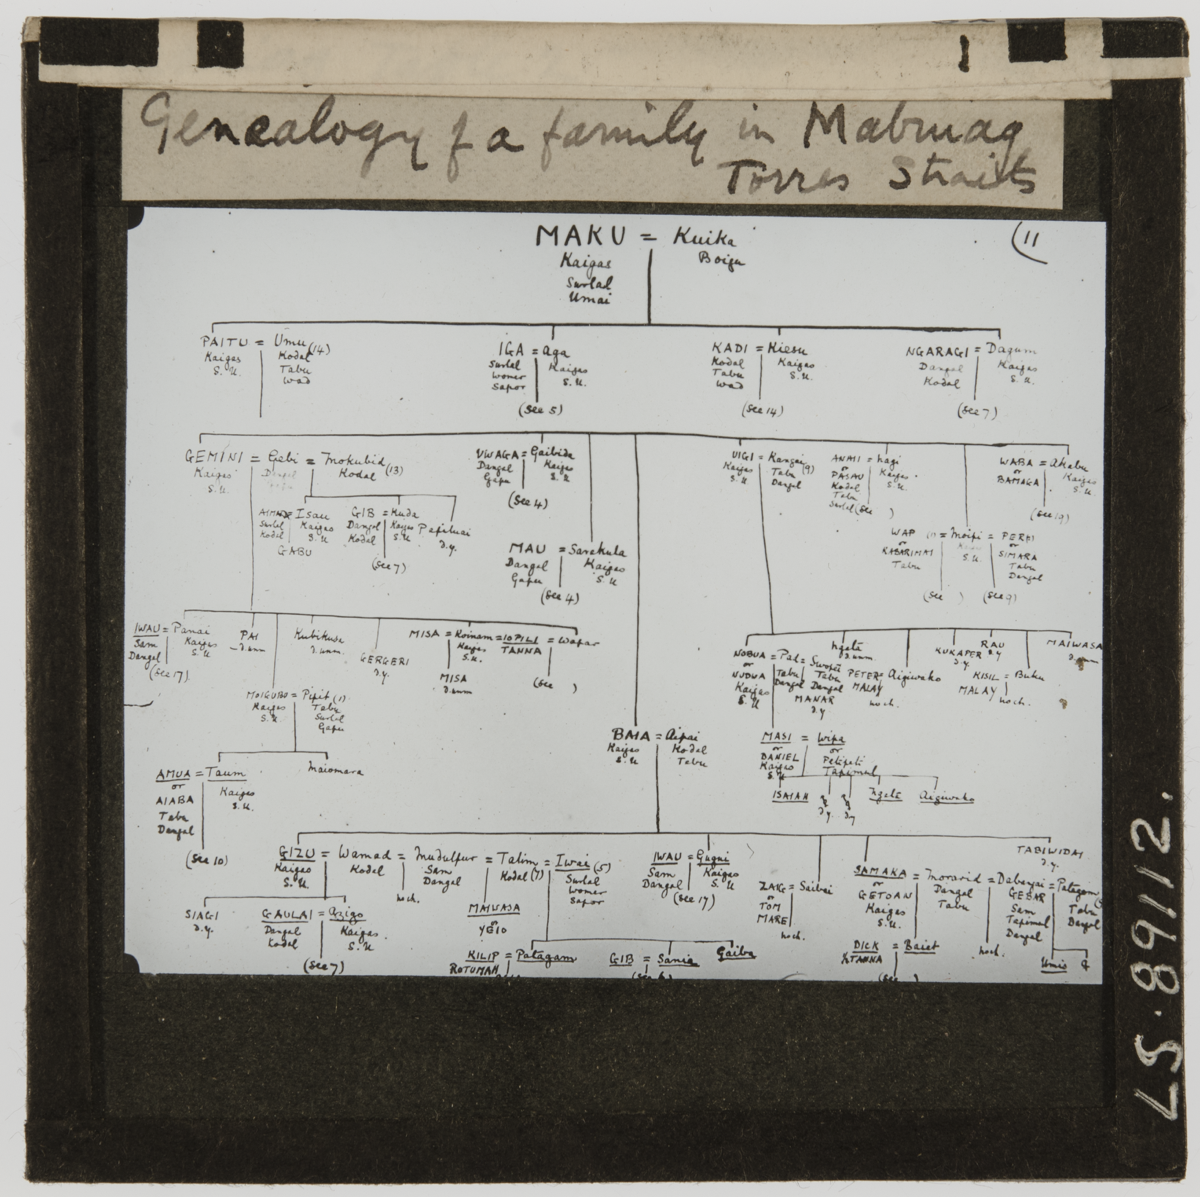 Genealogy of a family in Mabuiag
Torres Straits
(11
MAKU = Kuika
Kaigas Boigu
Surlal
Umai
PAITU = Umu (14)
Kaigas Kodal
S. U. Tabu
Wad
IGA = Aga
Surlal Kaigas
Womer S. U.
Sapor
(See 5)
KADI = Kiesu
Kodal Kaigas
Tabu S. U.
Wad
(See 14)
NGARAGI = Dagum
Dangal Kaigas
Kodal S. U.
(See 7)
GEMINI = Gebi = Mokubid (13)
Kaigas Dangal Kodal
S. U.
UWAGA = Gaibida
Dangal Kaigas
Gapu S. U.
(See 4)
UIGI = Kangai (9)
Kaigas Tabu
S. U. Dangal
ANAII = Nagi
or Kaigas
PASAU S. U.
Kodal
Tabu
Surlal (See )
WABA = Akabu
or Kaigas
BAMAGA S. U.
(See 19)
Isau
Surlal Kaigas
Kodal S. U.
GABU
GIB = Kuda
Dangal Kaigas
Kodal S. U.
(See 7)
d.y.
MAU = Sarakula
Dangal Kaigas
Gapu S. U.
(See 4)
WAP = Moipi = PERAI
or or
KABARIMAI S. U. SIMARA
Tabu Tabu
Dangal
(See ) (See 9)
IWAU = Panai
Sam Kaigas
Dangal S. U.
(See 17)
PAI
d.unm
Kubikusa
d.unm.
GERGERI
d.y.
MISA = Koinam = IOPILI = Wapar
Kaigas TANNA
S. U.
MISA
d.unm
(See )
MOIGUBU = Pipit (1)
Kaigas Tabu
S. U. Surlal
Gapu
NOBUA = Pat =
or Tabu Tabu
NUDUA Dangal Dangal
Kaigas MANAR
S. U. d.y
Ngata
d.unm.
PETER =
MALAY
no ch.
Aigiwako
KUKAPER
d.y.
RAU
d.y
KISIL = Buku
MALAY
no ch.
MAIWASA
d.unm
BAIA = Aipai
Kaigas Kodal
S. U. Tabu
MASI = Wipa
or or
DANIEL Petipeti
Kaigas Tapimul
S. U.
ISAIAH
d.y.
d.y
Ngata
Aigiwako
AMUA = Taum
or Kaigas
AIABA S. U.
Tabu
Dangal
(See 10)
Maiomara
GIZU = Wamad = Mudulpur = Tatim = Iwai (5)
Kaigas Kodal Sam Kodal (7) Surlal
S. U. Dangal Womer
Sapor
no ch.
MAIUASA
or
YEIO
IWAU = Gugui
Sam Kaigas
Dangal S. U.
(See 17)
ZAKG = Saibai
or
TOM
MARE
no ch.
SAMAKA = Morarid = Dabangai = Patagam
or Dangal GEBAR Tabu
GETOAN Tabu Sam Dangal
Kaigas Tapimul
S. U. Dangal
TABIWIDAI
d.y.
no ch.
SIAGI
d.y.
GAULAI = Azigo
Dangal Kaigas
Kodal S. U.
(See 7)
KILIP = Patagam
ROTUMAH
GIB = Sania
Gaiba
DICK = Baiet
TANNA
Umis
LS.89112.